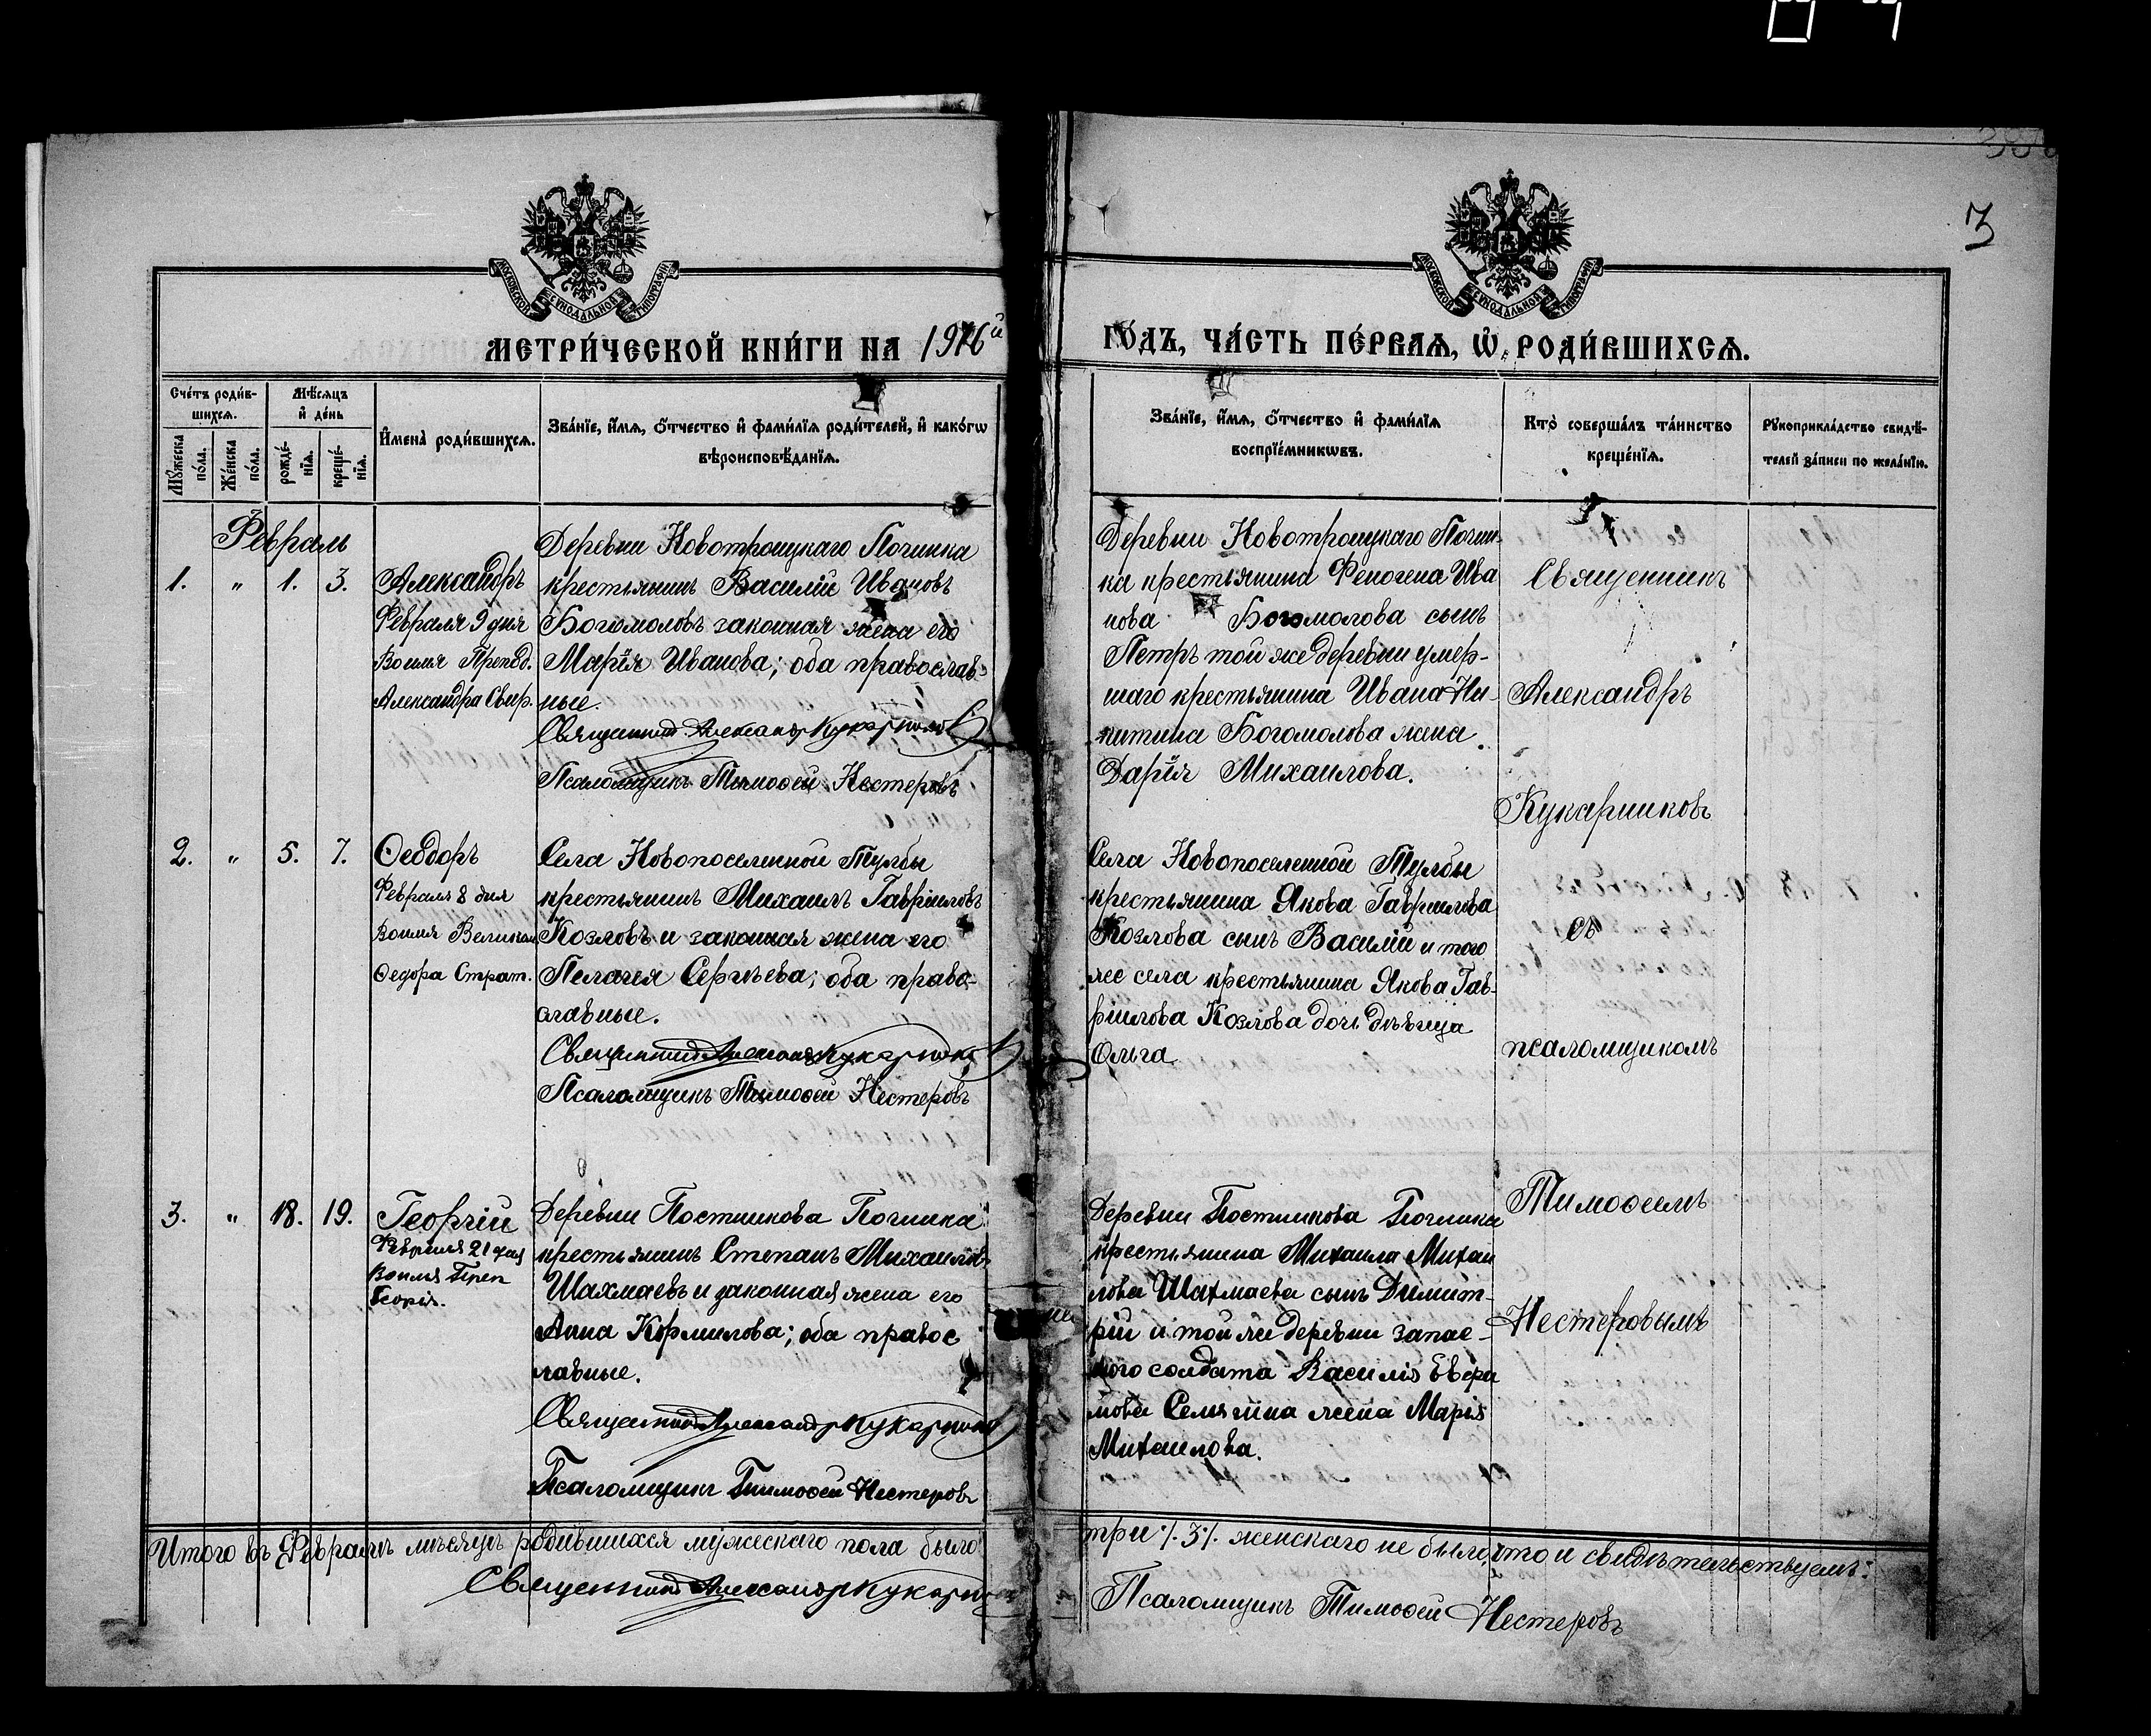 3
МОСКОВСКОЙ СѴНОДАЛЬНОЙ ТИПОГРАФІИ
МОСКОВСКОЙ СѴНОДАЛЬНОЙ ТИПОГРАФІИ
МЕТРИ́ЧЕСКОЙ КНИ́ГИ НА 1916й ГО́ДЪ, ЧА́СТЬ ПЕ́РВАѦ, Ѡ҆ РОДИ́ВШИХСѦ.
Сче́тъ роди́в-
шихсѧ.
Мѣ́сѧцъ
и҆ де́нь
Мꙋ́жеска
по́ла.
Же́нска
по́ла.
рожде́-
нїѧ.
креще́-
нїѧ.
И҆мена̀ роди́вшихсѧ.
Зва́нїе, и҆́мѧ, ѻ҆́тчество и҆ фами́лїѧ роди́телей, и҆ како́гѡ
вѣроисповѣ́данїѧ.
Зва́нїе, и҆́мѧ, ѻ҆́тчество и҆ фами́лїѧ
воспрїе́мникѡвъ.
Кто̀ соверша́лъ та́инство
креще́нїѧ.
Рꙋкоприкла́дство свидѣ́-
телей за́писи по жела́нїю.
Февраль
1. " 1. 3.
Александръ
Февраля 9 дня
Во имя Препод.
Александра Свир.
Деревни Новотроицкаго Починка
крестьянинъ Василій Ивановъ
Богомоловъ законная жена его
Марія Иванова; оба православ-
ные.
Священникъ Александръ Кукарниковъ
Псаломщикъ Тимоѳей Нестеровъ
Деревни Новотроицкаго Почин-
ка крестьянина Феногена Ива
нова Богомолова сынъ
Петръ той же деревни умер-
шаго крестьянина Ивана Ни-
китина Богомолова жена
Дарія Михаилова.
Священникъ
Александръ
Кукарниковъ
2. " 5. 7.
Ѳеодоръ
Февраля 8 дня
Во имя Великом
Ѳедора Страт.
Села Новопоселенной Тулбы
крестьянинъ Михаилъ Гавріиловъ
Козловъ и законная жена его
Пелагея Сергѣева; оба право-
славные.
Священникъ Александръ Кукарниковъ
Псаломщикъ Тимоѳей Нестеровъ
Села Новопоселенной Тулбы
крестьянина Якова Гавриилова
Козлова сынъ Василій и того
же села крестьянина Якова Гав-
ріилова Козлова дочь дѣвица
Ольга
съ
псаломщикомъ
3. " 18. 19.
Георгій
Февраля 21 дня
Во имя Преп
Георгія.
Деревни Постникова Починка
крестьянинъ Степанъ Михаиловъ
Шахмаевъ и законная жена его
Анна Кормилова; оба правос
лавные.
Священникъ Александръ Кукарниковъ
Псаломщикъ Тимоѳей Нестеровъ
Деревни Постникова Починка
крестьянина Михаила Михаи
лова Шахмаева сынъ Димит-
рій и той же деревни запас-
ного солдата Василія
жена Марія
Михаилова.
Тимоѳеемъ
Нестеровымъ
Итого въ Февралѣ мѣсяцѣ родившихся мужескаго пола было три ./. 3 ./. женскаго не было, что и свидѣтельствуемъ:
Священникъ Александръ Кукарников
Псаломщикъ Тимоѳей Нестеровъ